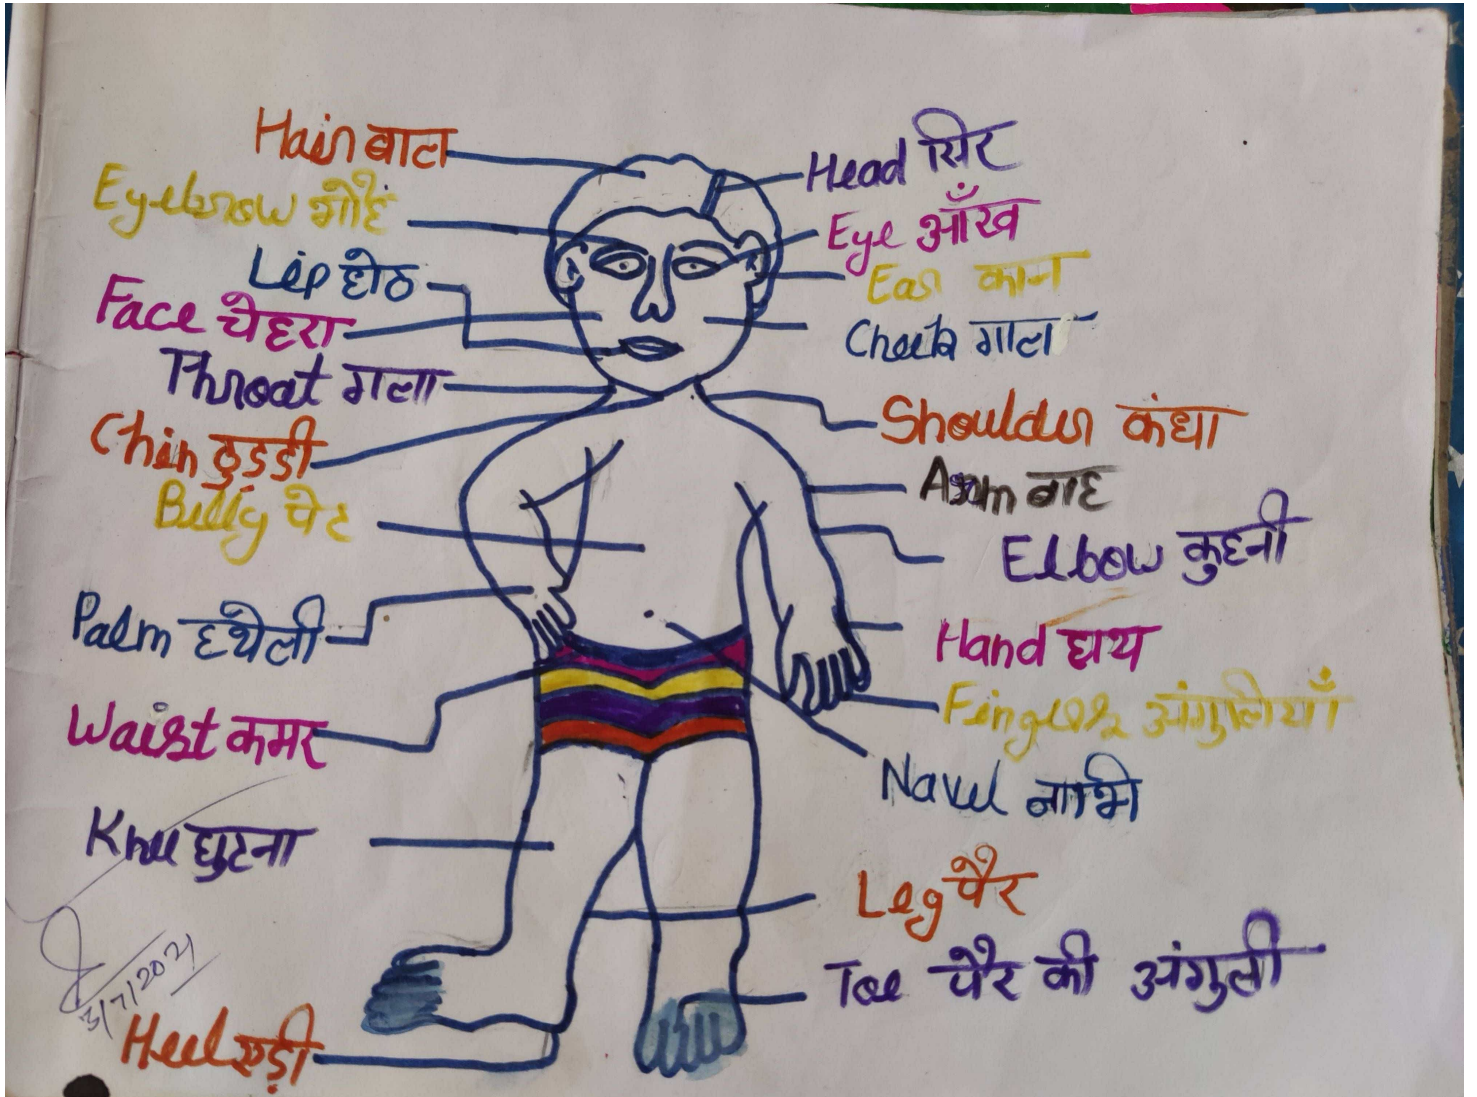 Hair बाल
Eyebrow भौहें
Lip होठ
Face चेहरा
Throat गला
Chin ठुड्डी
Belly पेट
Palm हथेली
Waist कमर
Knee घुटना
3/7/2021
Heel एड़ी
Head सिर
Eye आँख
Ear कान
Cheek गाल
Shoulder कंधा
Arm बाह
Elbow कुहनी
Hand हाथ
Fingers अंगुलियाँ
Navel नाभि
Leg पैर
Toe पैर की अंगुली